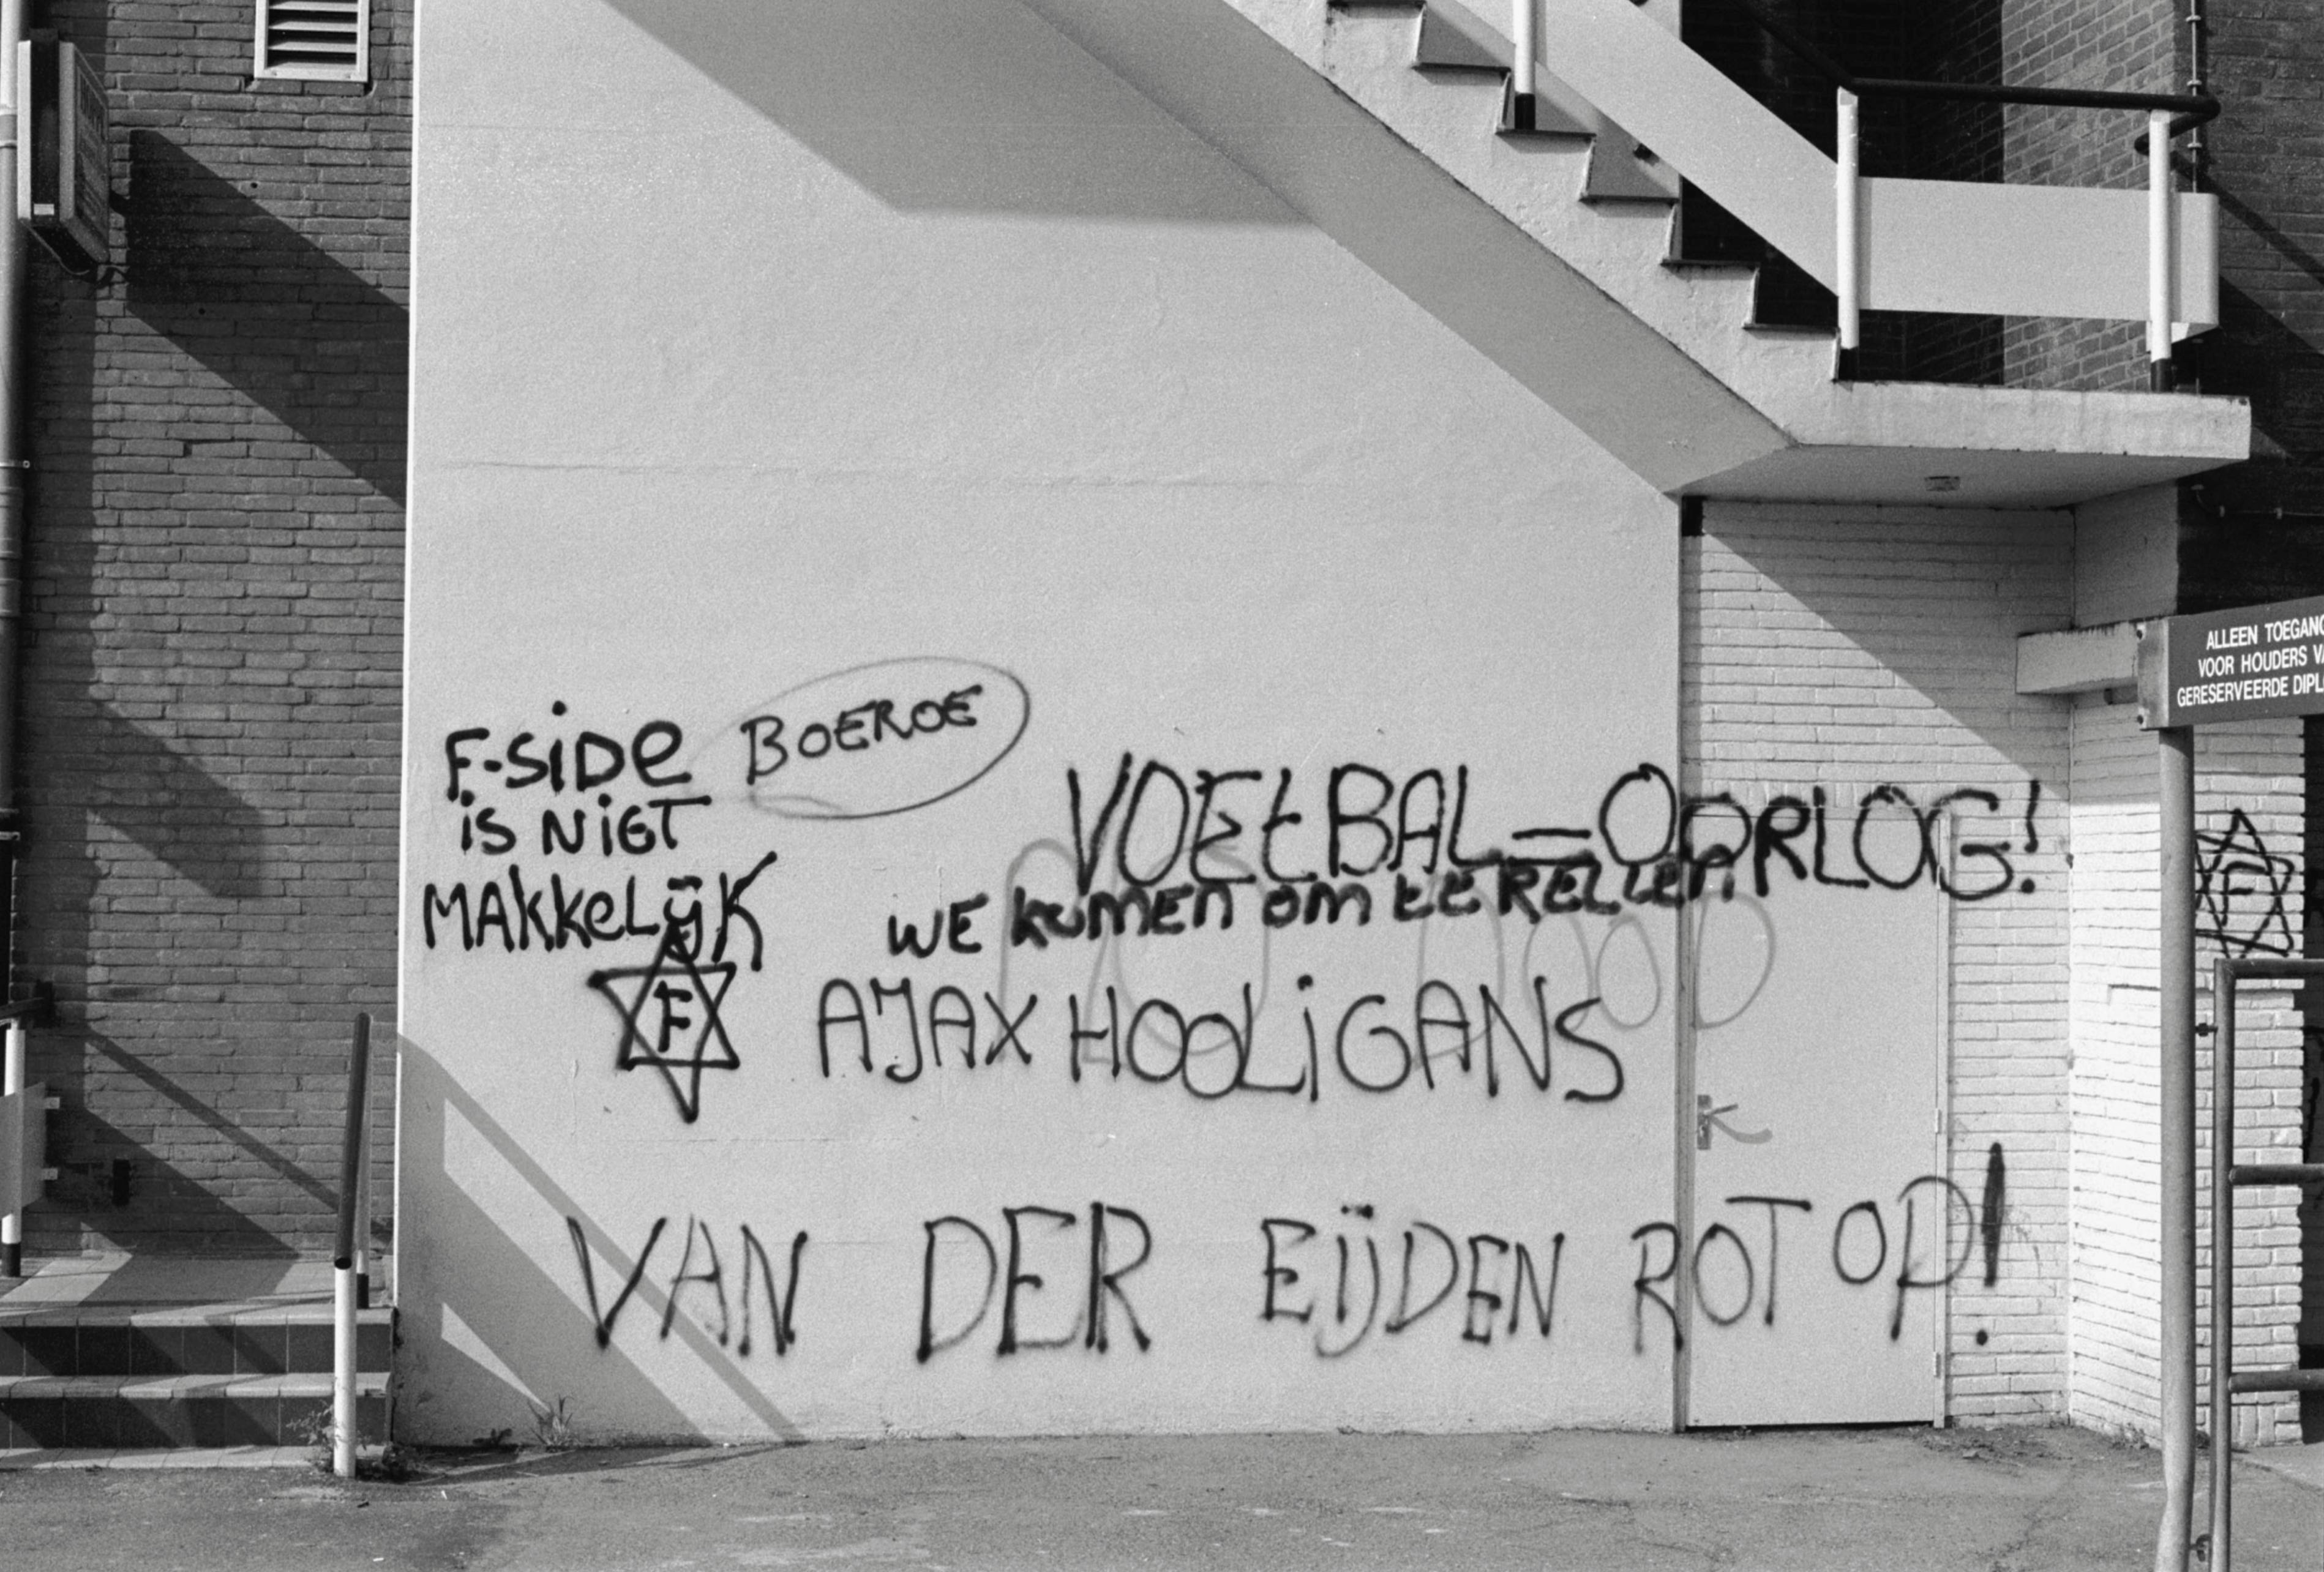 F-SiDe
iS NiET
MAKKeLijK
BOEROE
VOEtBAL=OORLOG!
WE komen om te RELLen
F
AJAX HOOLiGANS
VAN DER EIJDEN ROT OP!
ALLEEN TOEGANG
VOOR HOUDERS
GERESERVEERDE
F